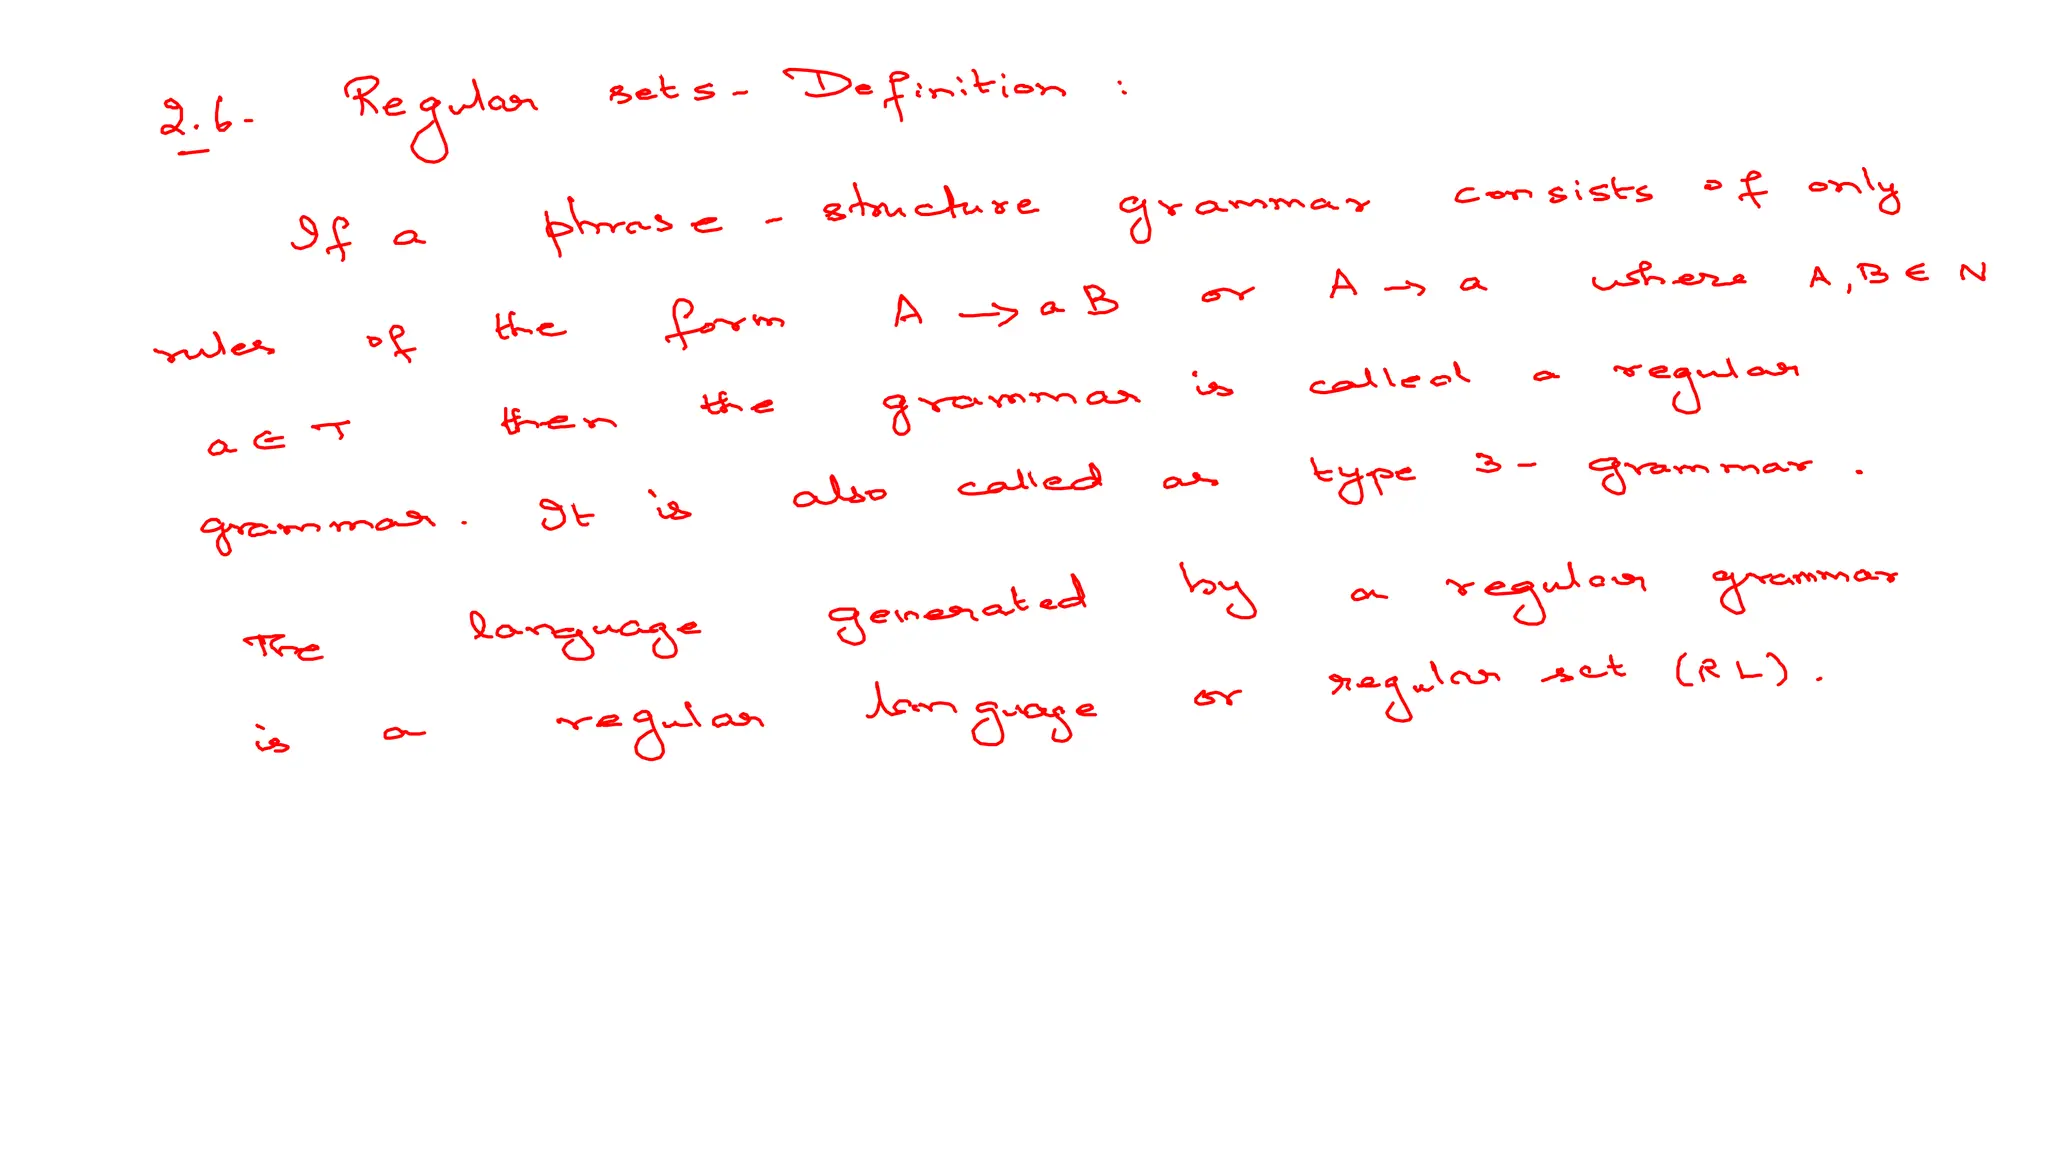 2.6- Regular sets - Definition :
If a phrase - structure grammar consists of only
rules of the form A → a B or A → a where A, B ∈ N
a ∈ T then the grammar is called a regular
grammar. It is also called as type 3 - grammar.
The language generated by a regular grammar
is a regular language or regular set (RL).